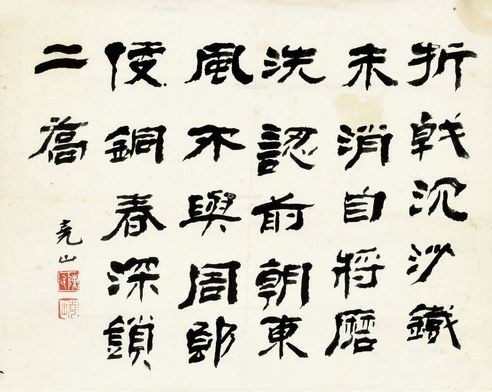 折戟沉沙鐵
未消自將磨
洗認前朝東
風不與周郎
便銅春深鎖
二喬
堯山